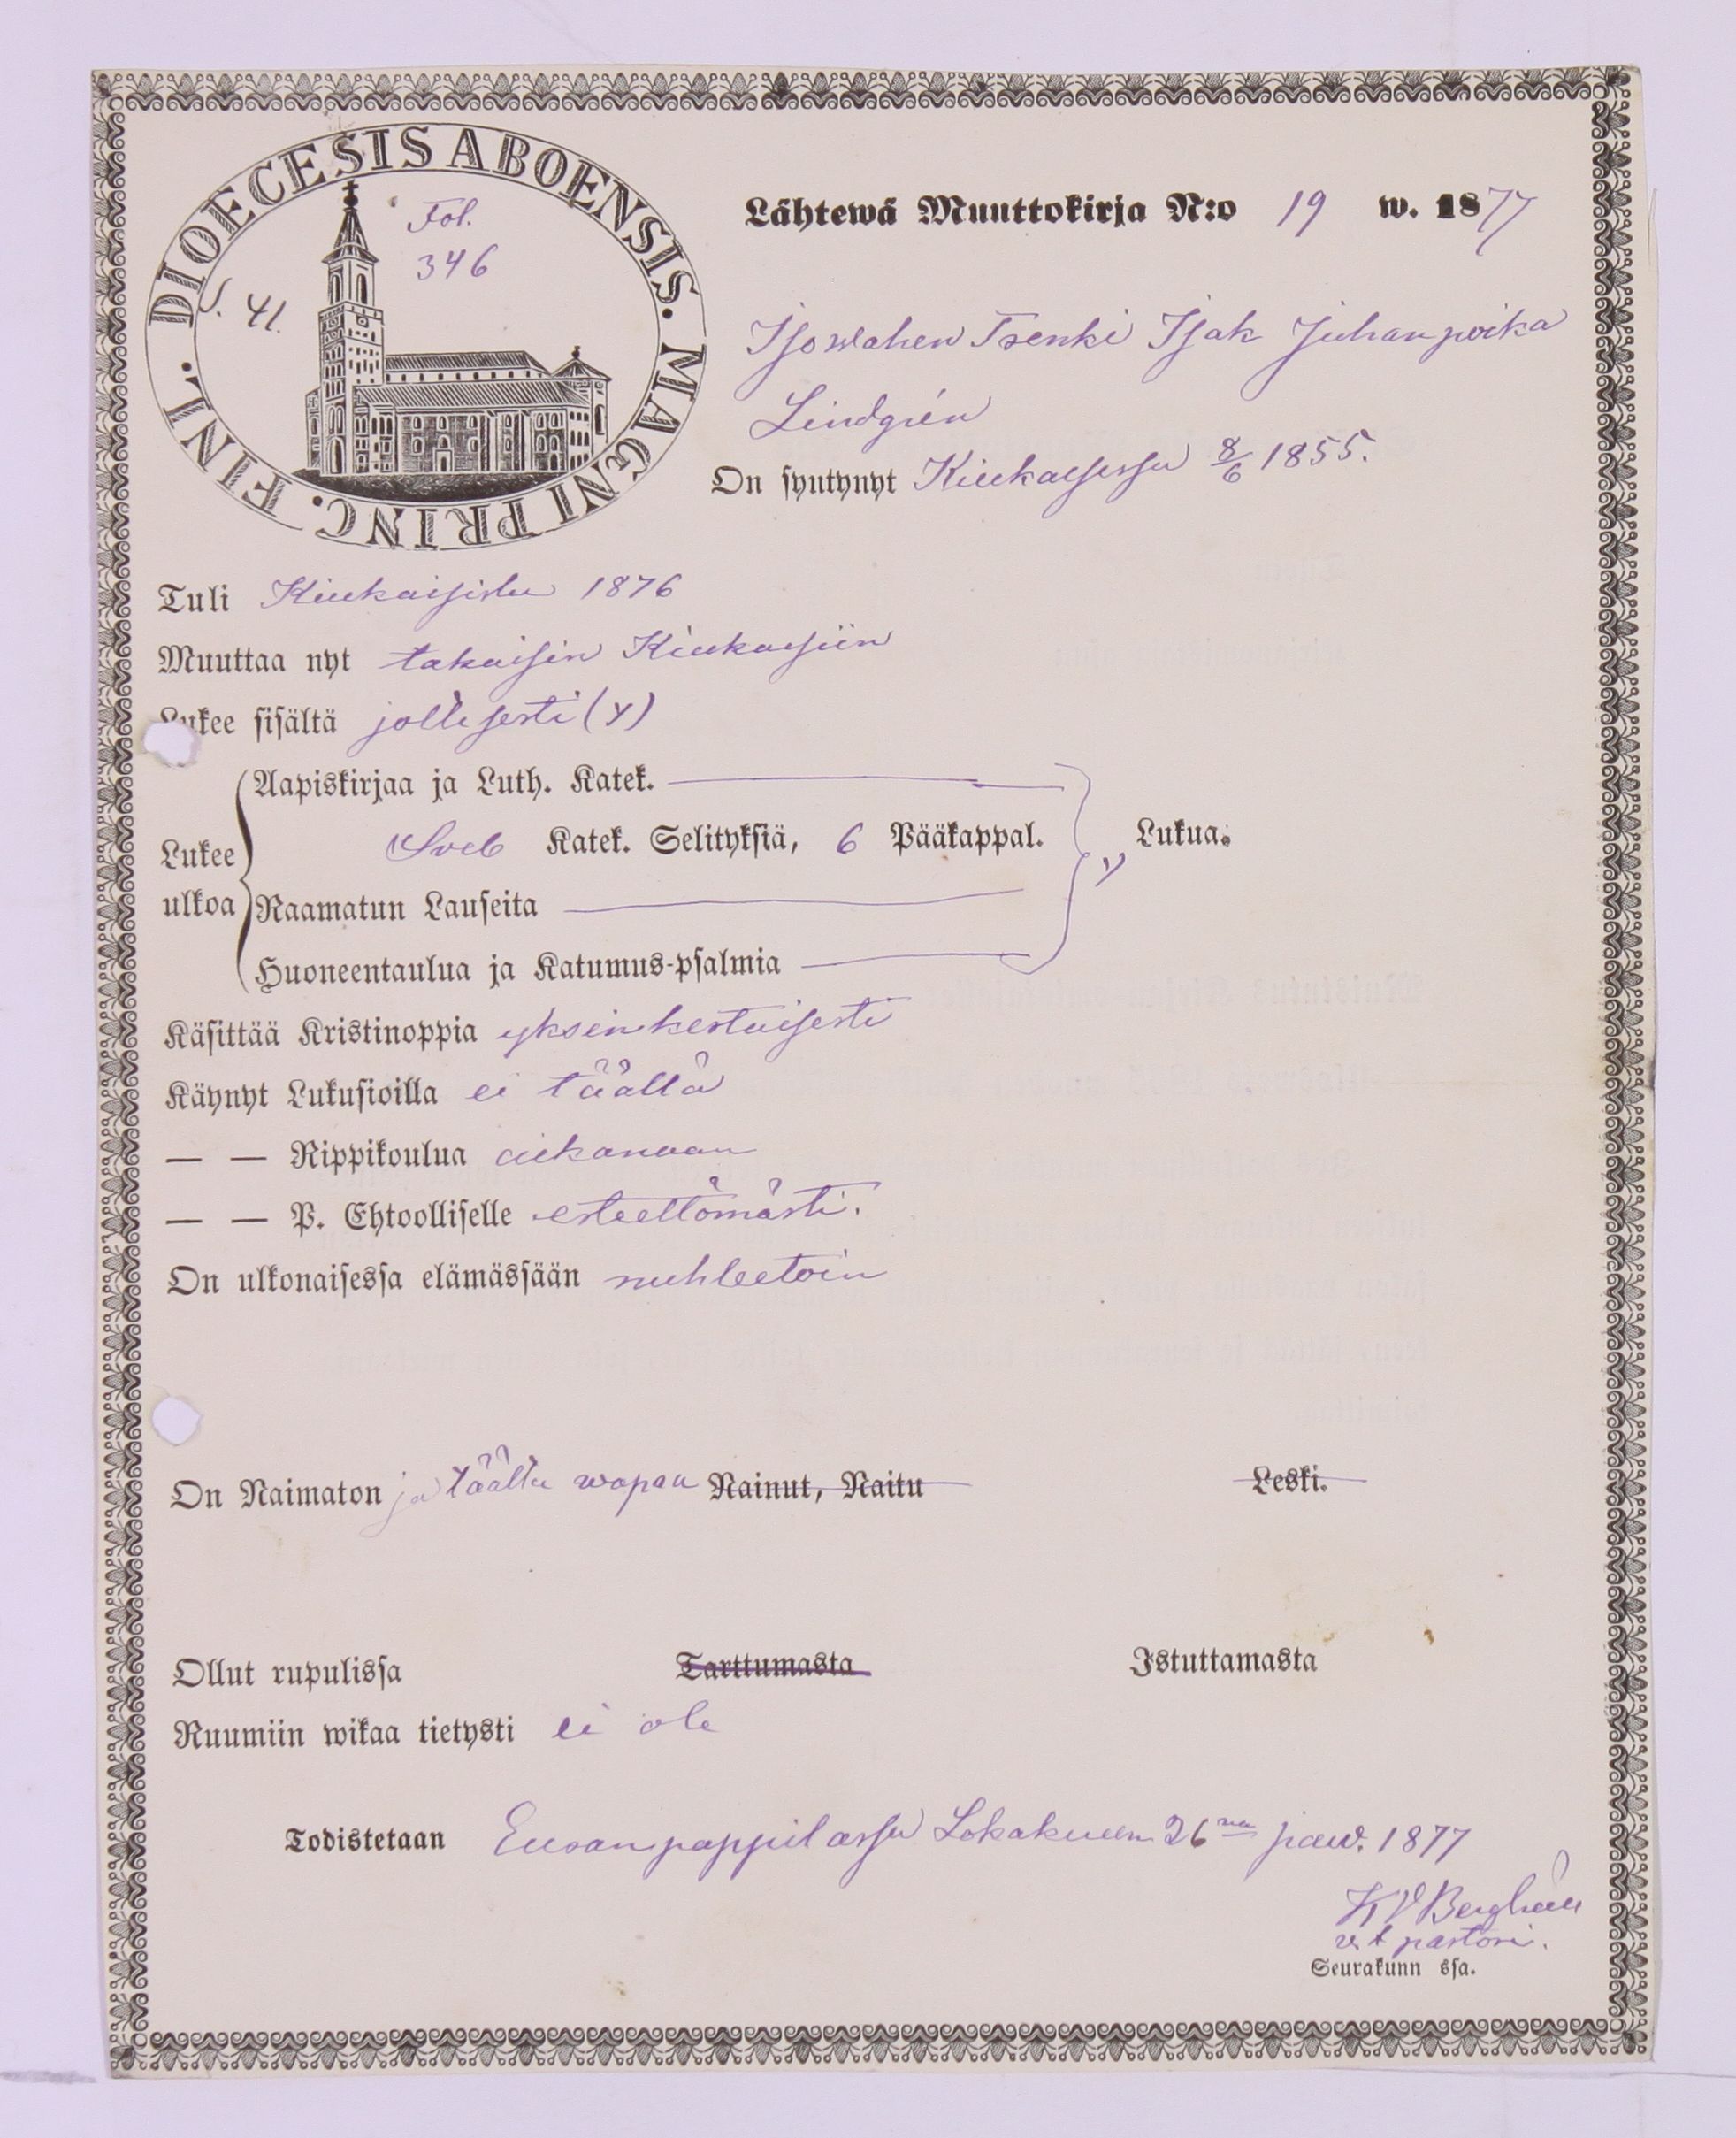 DIOECESIS ABOENSIS. MAGNI PRINC. FINL.
Fol.
346
S. 41.
Lähtewä Muuttokirja N:o 19 w. 1877
Isowahen Trenki Isak Juhanpoika
Lindgrén
On syntynyt Kiukaisessa 8/6 1855.
Tuli Kiukaisista 1876
Muuttaa nyt takaisin Kiukaisiin
Lukee sisältä jollisesti (y)
Aapiskirjaa ja Luth. Katek.
Lukee ulkoa
Sveb Katek. Selityksiä, 6 Pääkappal. y Lukua.
Raamatun Lauseita
Huoneentaulua ja Katumus-psalmia
Käsittää Kristinoppia yksinkertaisesti
Käynyt Lukusioilla ei täällä
— — Rippikoulua aikanaan
— — P. Ehtoolliselle esteettömästi.
On ulkonaisessa elämässään nuhteetoin
On Naimaton ja täältä wapaa Nainut, Naitu Leski.
Ollut rupulissa Tarttumasta Istuttamasta
Ruumiin wikaa tietysti ei ole
Todistetaan Euran pappilassa Lokakuun 26na päiw. 1877
v. t. pastori.
Seurakunn ssa.